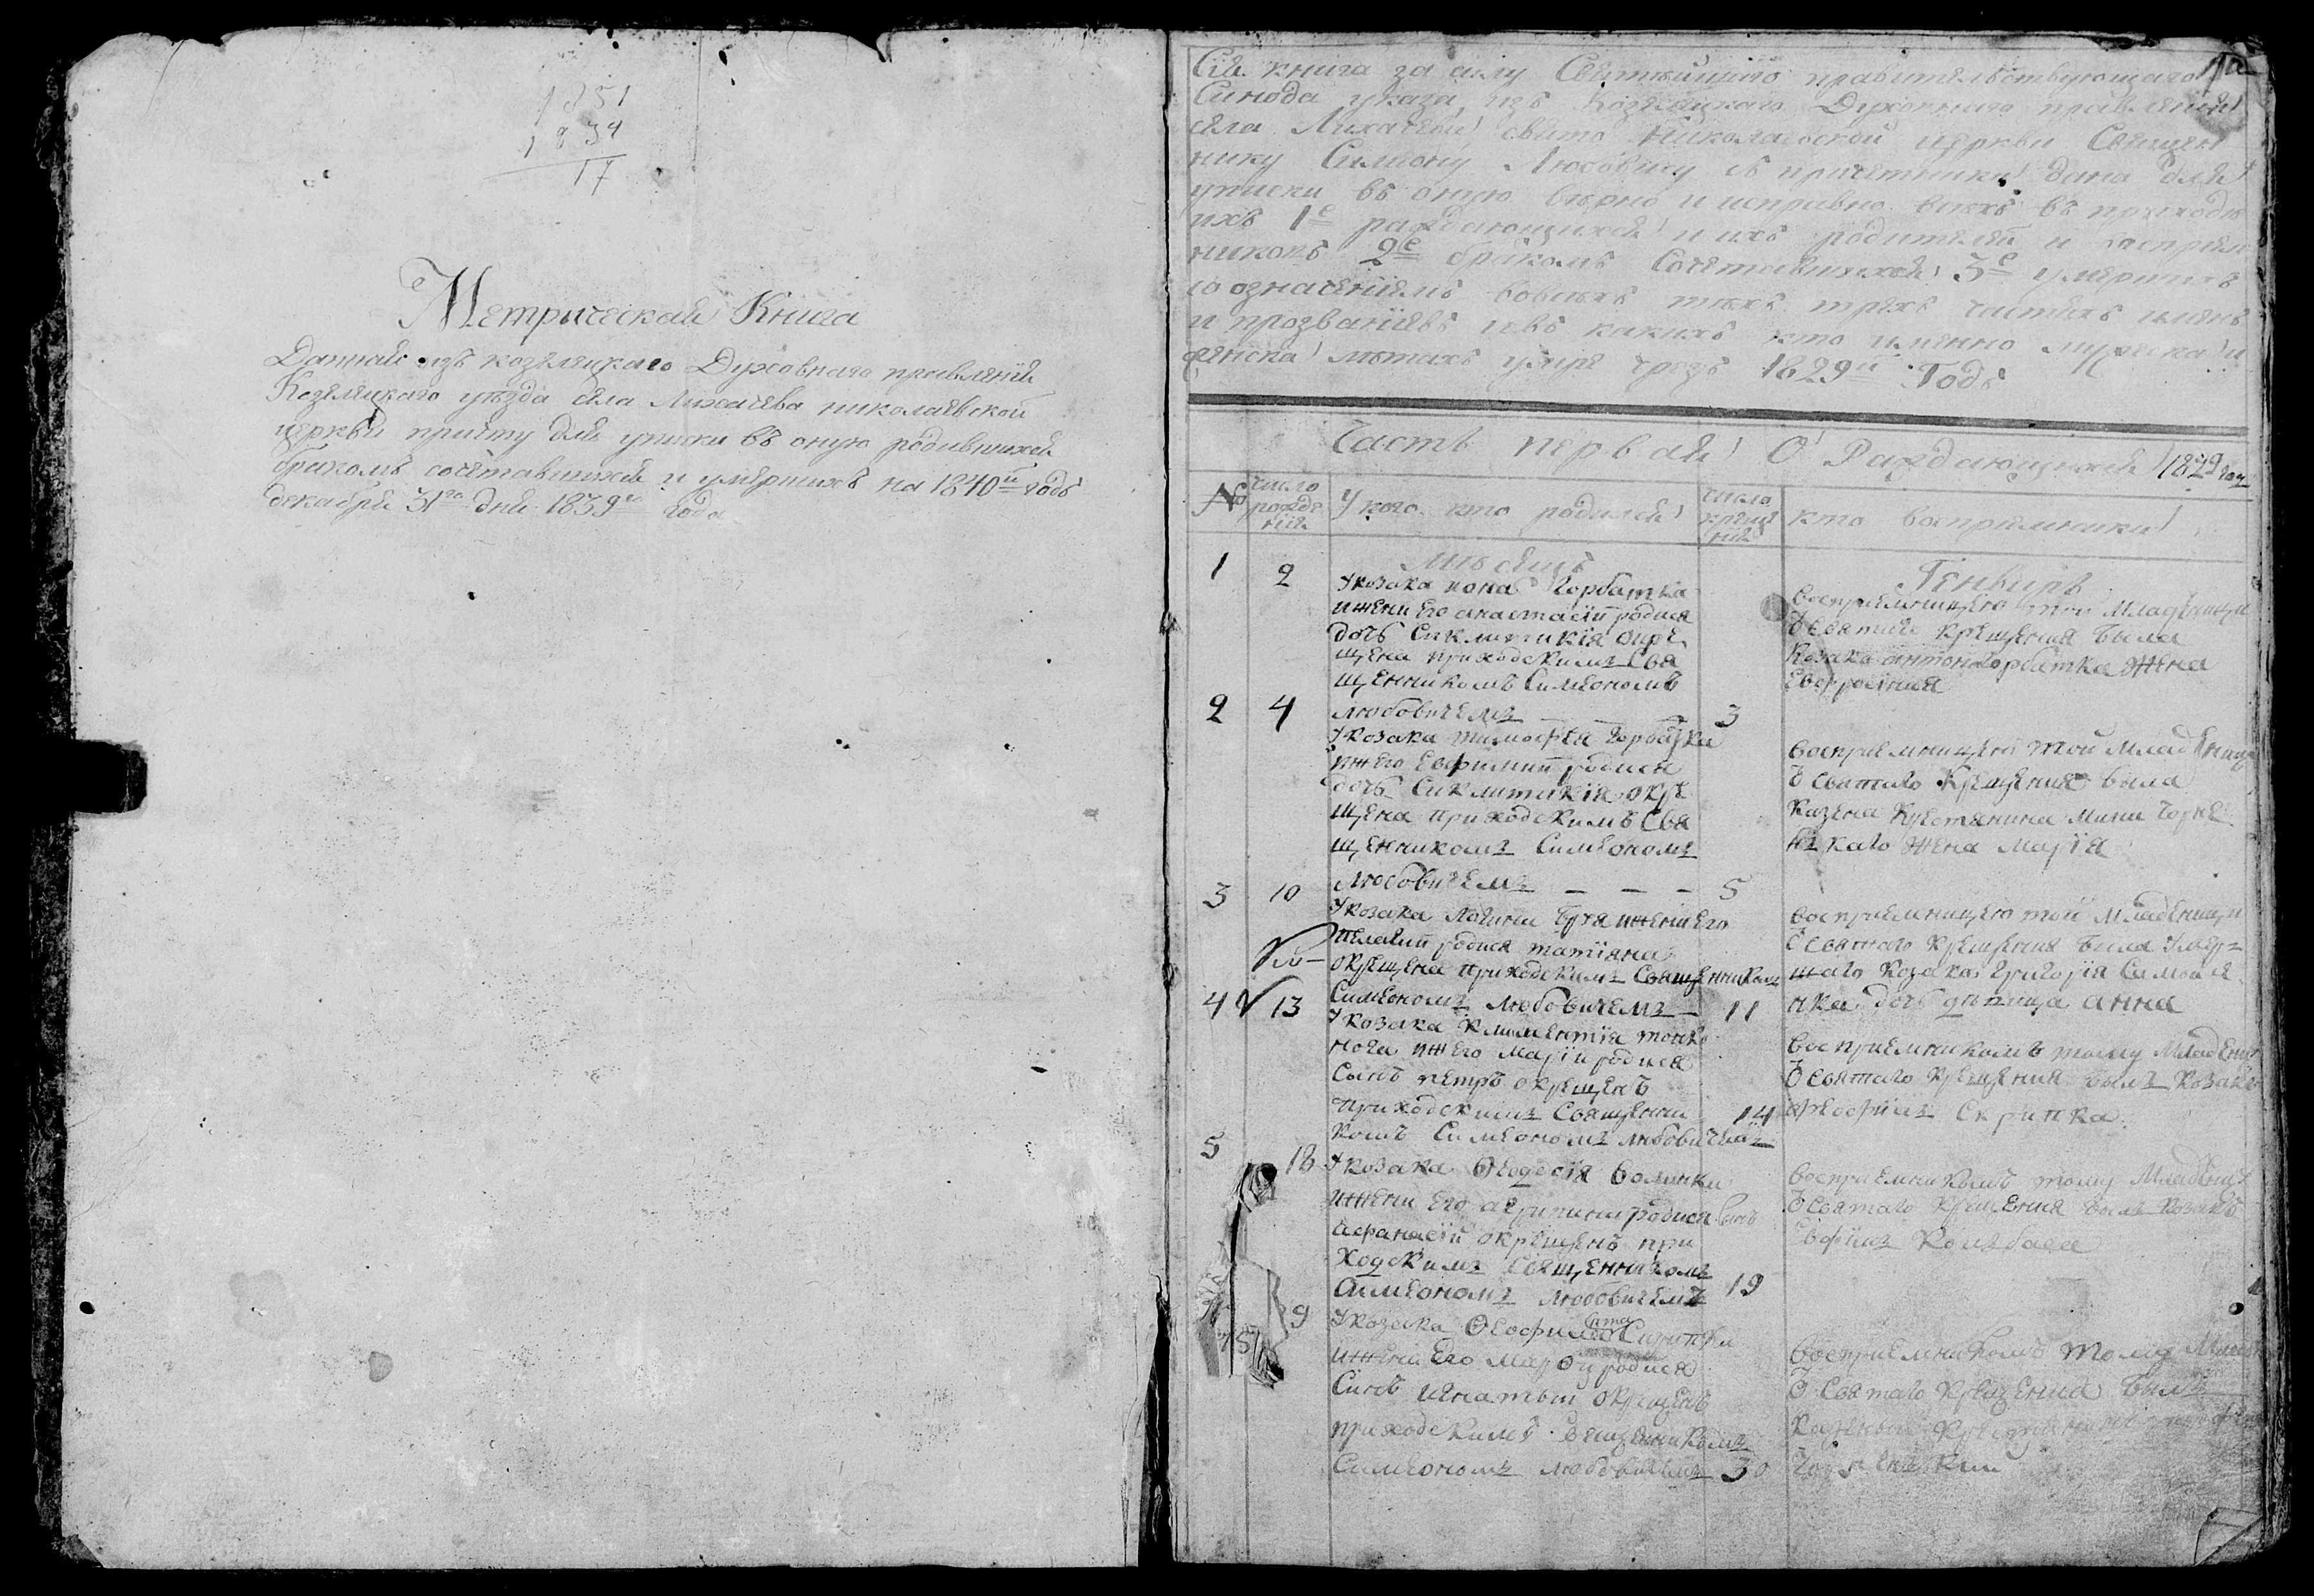 1851
1834
17
Метрическая Книга
Данная изъ козелецкаго Духовнаго правленія
Козелецкаго уѣзда села Лихачева николаевской
церкви причту для уписки въ оную родившихся
бракомъ сочетавшихся и умершихъ на 1840й годъ
декабря 31го дня 1839го года
1а
Сія книга за силу Святѣйшаго правительствующаго
Синода указа, изъ Козелецкаго Духовнаго правленія
села Лихачева свято Николаевской церкви Священ
нику Симеону Любовичу съ причетники дана для
уписки въ оную вѣрно и исправно всѣхъ въ приходѣ
ихъ 1е раждающихся и ихъ родителей и воспріем
никовъ 2е бракомъ Сочетавшихся 3е умершихъ
со означеніемъ вовсѣхъ тѣхъ трехъ частяхъ именъ
и прозваніевъ и въ какихъ кто именно мужеска и
женска лѣтахъ умре чрезъ 1829й Годъ
Часть первая О Раждающихся 1829 году
№ число рожде нія У кого кто родился число креще нія кто воспріемники
мѣсяцъ Генваръ
1 2 У козака иона Горбатка
ижени Его анастасіи родися
дочь Сиклитикія окре
щена приходскимъ Свя
щенникомъ Симеономъ
любовичемъ 3
воспріемницею той младеници
Ѿ святаго крещения была
Козака антона Горбатка Жена
Евфросиния
2 4 У козака тимофея Горбатка
иж Его Евфимии родися
дочь Сиклитикія окре
щена приходскимъ Свя
щенникомъ Симеономъ
Любовичемъ 5
воспріемницею той младеници
Ѿ святаго Крещения была
Казена Крестянина
каго Жена Марія
3 10 У козака ижени Его
пелагии родися татіяна
окрещена приходскимъ Священникомъ
Симеономъ Любовичемъ 11
воспріемницею той младеници
Ѿ святаго Крещения была Умер
шаго Козака Григорія Самойле
нка дочь дѣвица анна
4 13 У козака климентія
иж Его Маріи родися
Сынъ петръ окрещенъ
приходскимъ Священни 14
комъ Симеономъ любовичемъ
воспріемникомъ тому младенцу
Ѿ святаго Крещения былъ козакъ
Феофилъ Скрипка
5 18 У козака Ѳеодосія
ижени Его агрипини родися сынъ
Афанасій окрещенъ при
ходскимъ Священникомъ
Симеономъ любовичемъ 19
воспріемникомъ тому младенцу
Ѿ святаго Крещения былъ козакъ
Ефимъ
9 У козака Ѳеофила Скрипки
ижени Его Марѳи родися
Синъ игнатий окрещенъ
приходскимъ Священникомъ
Симеономъ любовичемъ 30
воспріемникомъ тому
Ѿ Святаго Крещения былъ
казеный Крестянинъ